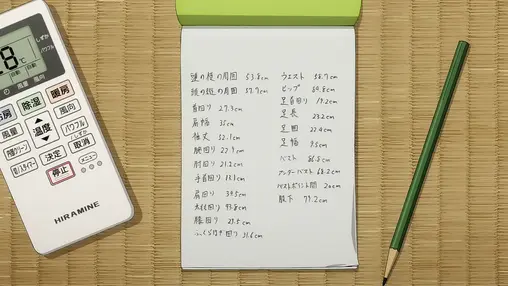 8℃
自動
自動
しずか
パワフル
風量 風向
冷房
除湿
暖房
風量
温度
風向
内部クリーン
パワフル
しずか
切/入タイマー
決定
取消
停止
メニュー
HIRAMINE
頭の縦の周囲 53.8cm
頭の横の周囲 57.9cm
首回り 29.3cm
肩幅 35cm
袖丈 52.1cm
腕回り 22.4cm
肘回り 21.2cm
手首回り
肩回り 34.5cm
太もも回り 47.8cm
膝回り
ふくらはぎ回り 31.6cm
ウエスト 58.7cm
ヒップ
足首回り 19.2cm
足長 23.2cm
足囲 22.4cm
足幅 9.5cm
バスト
アンダーバスト 68.2cm
バストポイント間 20cm
股下 77.2cm